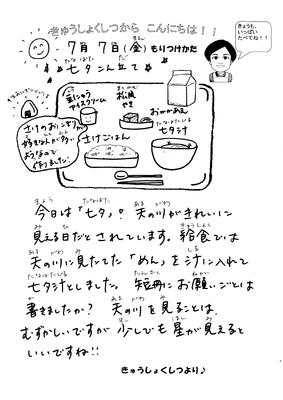 きゅうしょくしつから こんにちは！！
きょうも、
いっぱい
たべてね！！
7月 7日(金) もりつけかた
☆七夕こん立て☆
豆にゅう
アイスクリーム
松風
やき
おかかあえ
七夕汁
さけごはん
さけのおにぎりが
好きな人が多い
ようなので
作りました。
今日は「七夕」。天の川がきれいに
見える日だとされています。給食では
天の川に見たてた「めん」を汁に入れて
七夕汁としました。短冊にお願いごとは
書きましたか？ 天の川を見ることは、
むずかしいですが 少しでも星が見えると
いいですね!!
きゅうしょくしつより♪